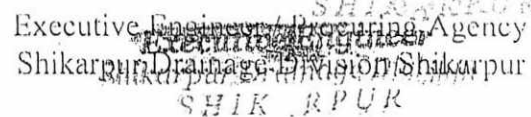 Executive Engineer / Procuring Agency
Shikarpur Drainage Division Shikarpur
Executive Engineer
SHIK RPUR